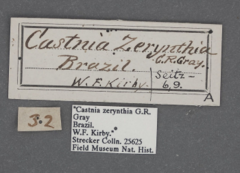 Castnia Zerynthia
G.R. Gray.
Brazil.
W. F. Kirby.
Seitz-
69.
A
3.2
"Castnia zerynthia G.R.
Gray
Brazil.
W.F. Kirby."
Strecker Colln. 25625
Field Museum Nat. Hist.